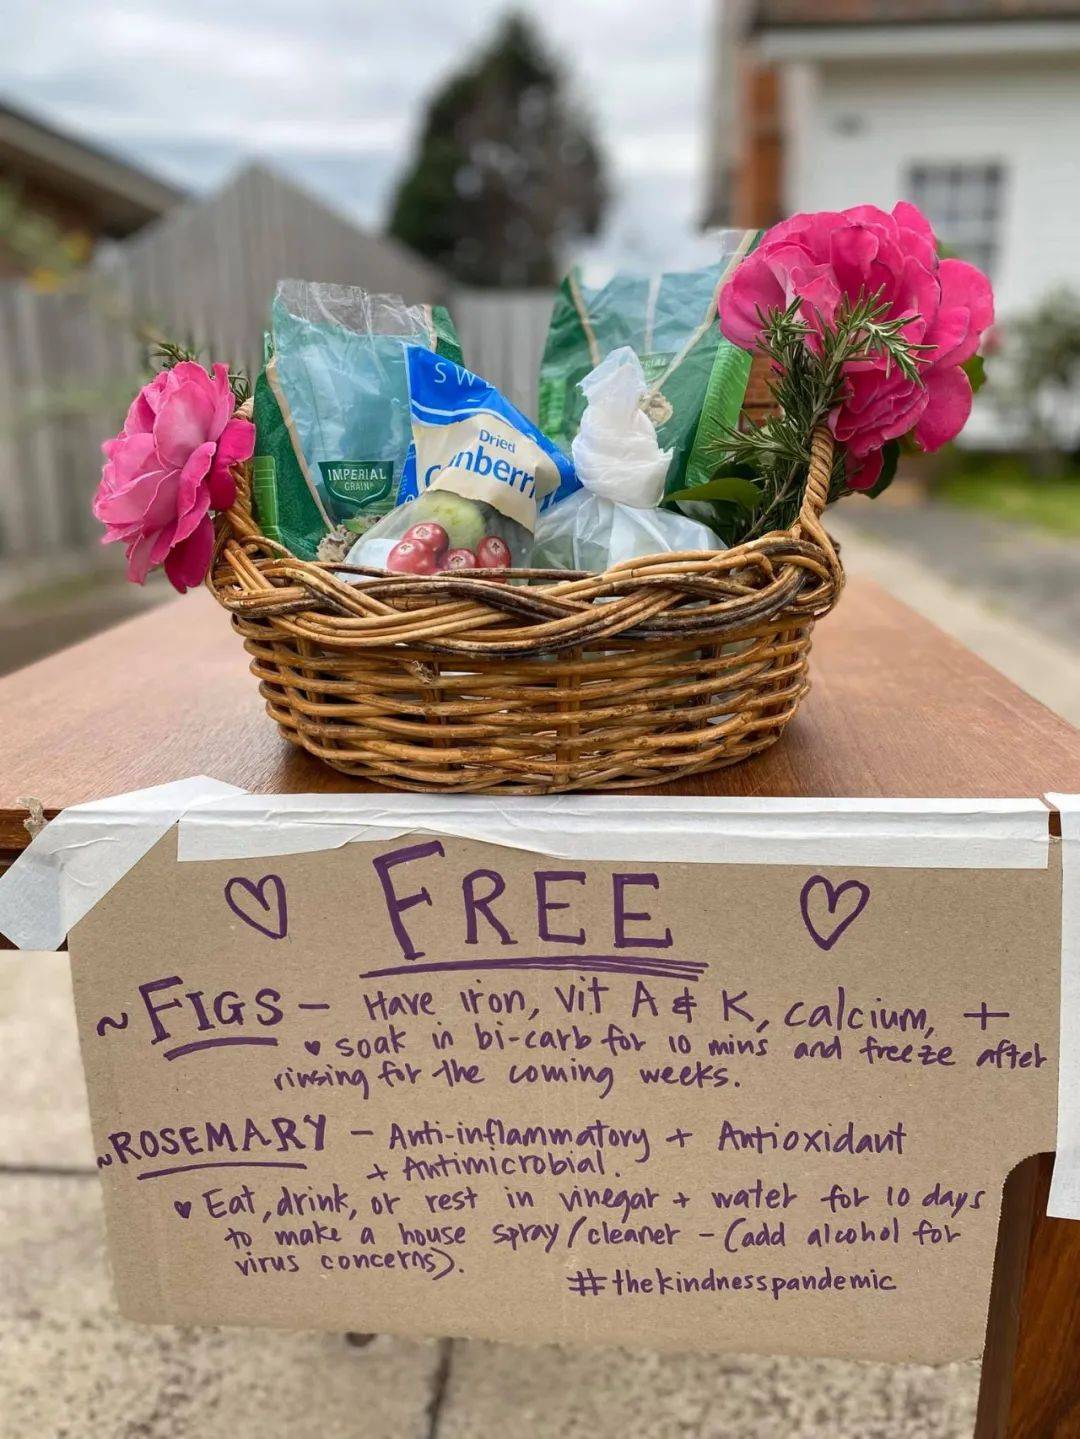 IMPERIAL
GRAIN
SW
Dried
anberr
FREE
~ FIGS - Have iron, vit A & K, calcium, +
♥ soak in bi-carb for 10 mins and freeze after
rinsing for the coming weeks.
~ ROSEMARY - Anti-inflammatory + Antioxidant
+ Antimicrobial.
♥ Eat, drink, or rest in vinegar + water for 10 days
to make a house spray/cleaner - (add alcohol for
virus concerns).
#thekindnesspandemic